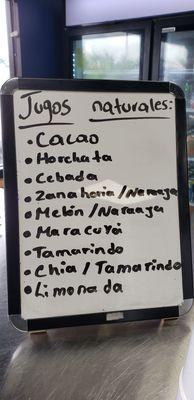 Jugos naturales:
• Cacao
• Horchata
• Cebada
• Zanahoria/Naranja
• Melón/Naranja
• Maracuyá
• Tamarindo
• Chia/Tamarindo
• Limonada